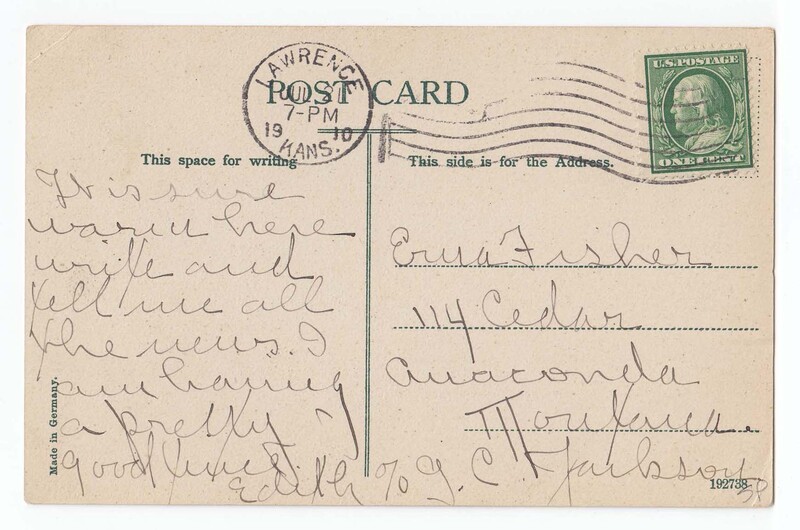 LAWRENCE
JUL
7-PM
19 10
KANS.
POST CARD
U.S. POSTAGE
ONE CENT
This space for writing
This side is for the Address.
It is sure
warm here
write and
tell me all
the news. I
am having
a pretty
good time.
Edith
Erma Fisher
114 Cedar
Anaconda
Montana.
% J. C. Jackson
Made in Germany.
192738